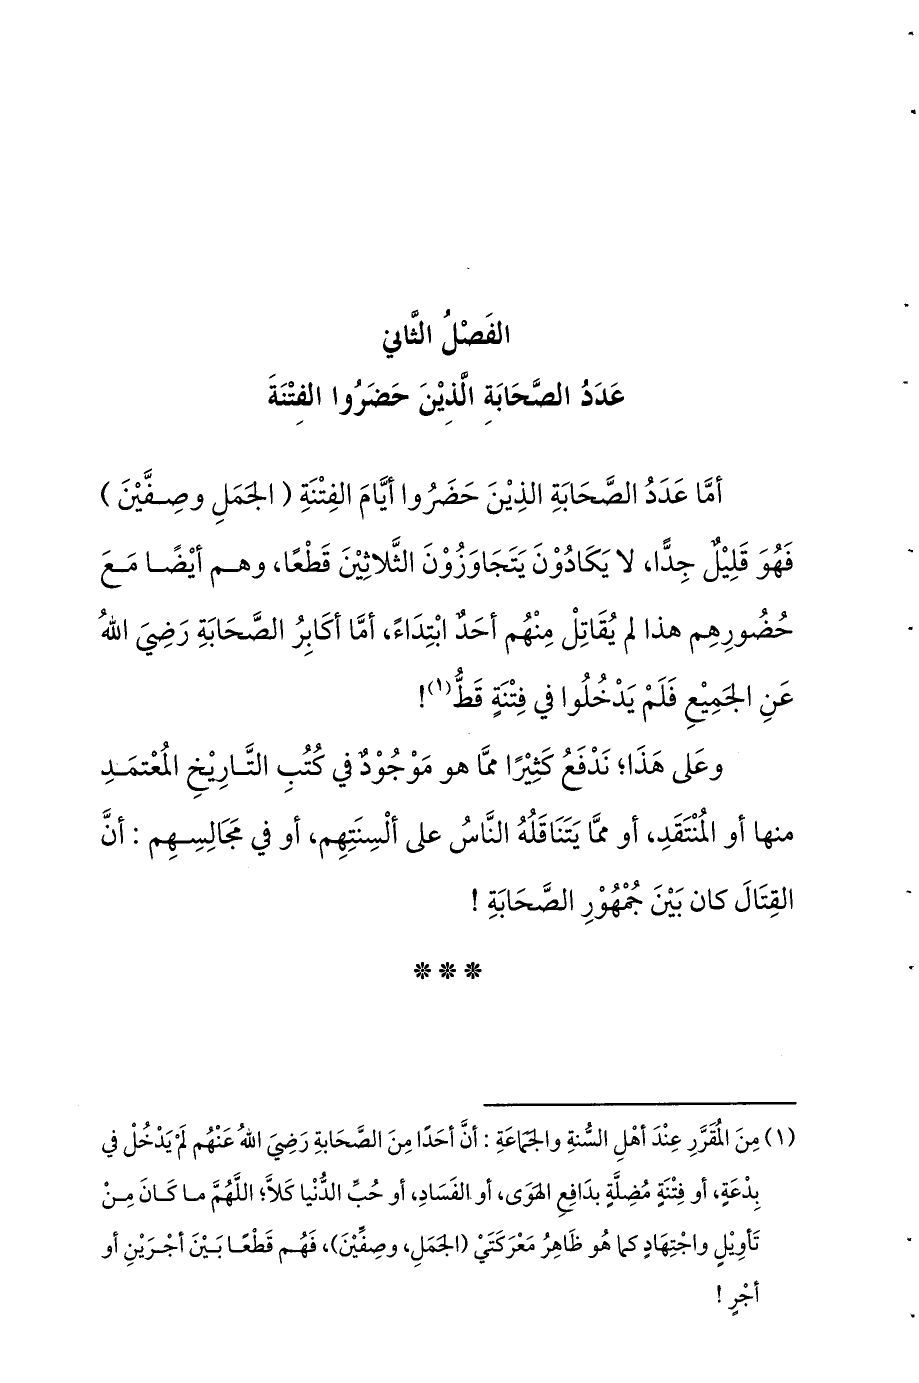 الفَصْلُ الثَّاني
عَدَدُ الصَّحَابَةِ الَّذِيْنَ حَضَرُوا الفِتْنَةَ
أمَّا عَدَدُ الصَّحَابَةِ الذِيْنَ حَضَرُوا أيَّامَ الفِتْنَةِ ( الجَمَلِ وصِفَّيْنَ )
فَهُوَ قَلِيْلٌ جِدًّا، لا يَكَادُوْنَ يَتَجَاوَزُوْنَ الثَّلاثِيْنَ قَطْعًا، وهم أيْضًا مَعَ
حُضُورِهِم هذا لم يُقَاتِلْ مِنْهُم أحَدٌ ابْتِدَاءً، أمَّا أكَابِرُ الصَّحَابَةِ رَضِيَ اللهُ
عَنِ الجَمِيْعِ فَلَمْ يَدْخُلُوا في فِتْنَةٍ قَطُّ(١)!
وعَلى هَذَا؛ نَدْفَعُ كَثِيْرًا ممَّا هو مَوْجُوْدٌ في كُتُبِ التَّارِيْخِ المُعْتمَدِ
منها أو المُنْتَقَدِ، أو ممَّا يَتَنَاقَلُهُ النَّاسُ على ألْسِنَتِهِم، أو في مَجَالِسِهِم : أنَّ
القِتَالَ كان بَيْنَ جُمْهُوْرِ الصَّحَابَةِ !
***
(١) مِنَ المُقَرَّرِ عِنْدَ أهْلِ السُّنةِ والجَمَاعَةِ : أنَّ أحَدًا مِنَ الصَّحَابةِ رَضِيَ اللهُ عَنْهُم لَمْ يَدْخُلْ في
بِدْعَةٍ، أو فِتْنَةٍ مُضِلَّةٍ بدَافِعِ الهَوَى، أو الفَسَادِ، أو حُبِّ الدُّنْيا كَلاَّ؛ اللَّهُمَّ ما كَانَ مِنْ
تَأوِيْلٍ واجْتِهَادٍ كما هُو ظَاهِرُ مَعْرَكَتَيْ (الجَمَلِ، وصِفِّيْنَ)، فَهُم قَطْعًا بَيْنَ أجْرَيْنِ أو
أجْرٍ !